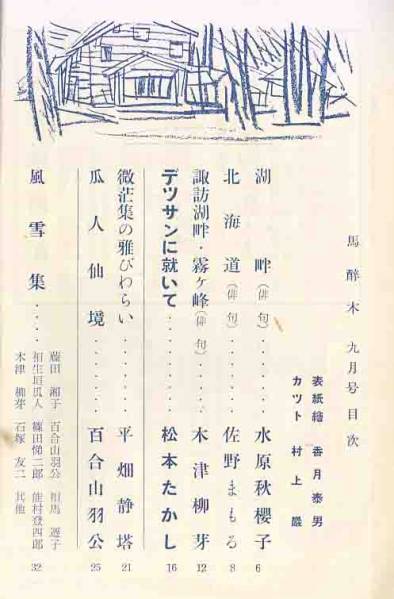 馬醉木 九月号 目次
表紙繪 香月泰男
カツト 村上巖
湖畔(俳句)・・・・・・水原秋櫻子 6
北海道(俳句)・・・・・・佐野まもる 8
諏訪湖畔・霧ケ峰(俳句)・・・・・・木津柳芽 12
デツサンに就いて・・・・・・・・松本たかし 16
微茫集の雅びわらい・・・・・・平畑静塔 21
瓜人仙境・・・・・・・百合山羽公 25
風雪集・・・・
藤田湘子 百合山羽公 相馬遷子
相生垣瓜人 篠田悌二郎 能村登四郎
木津柳芽 石塚友二 其他
32